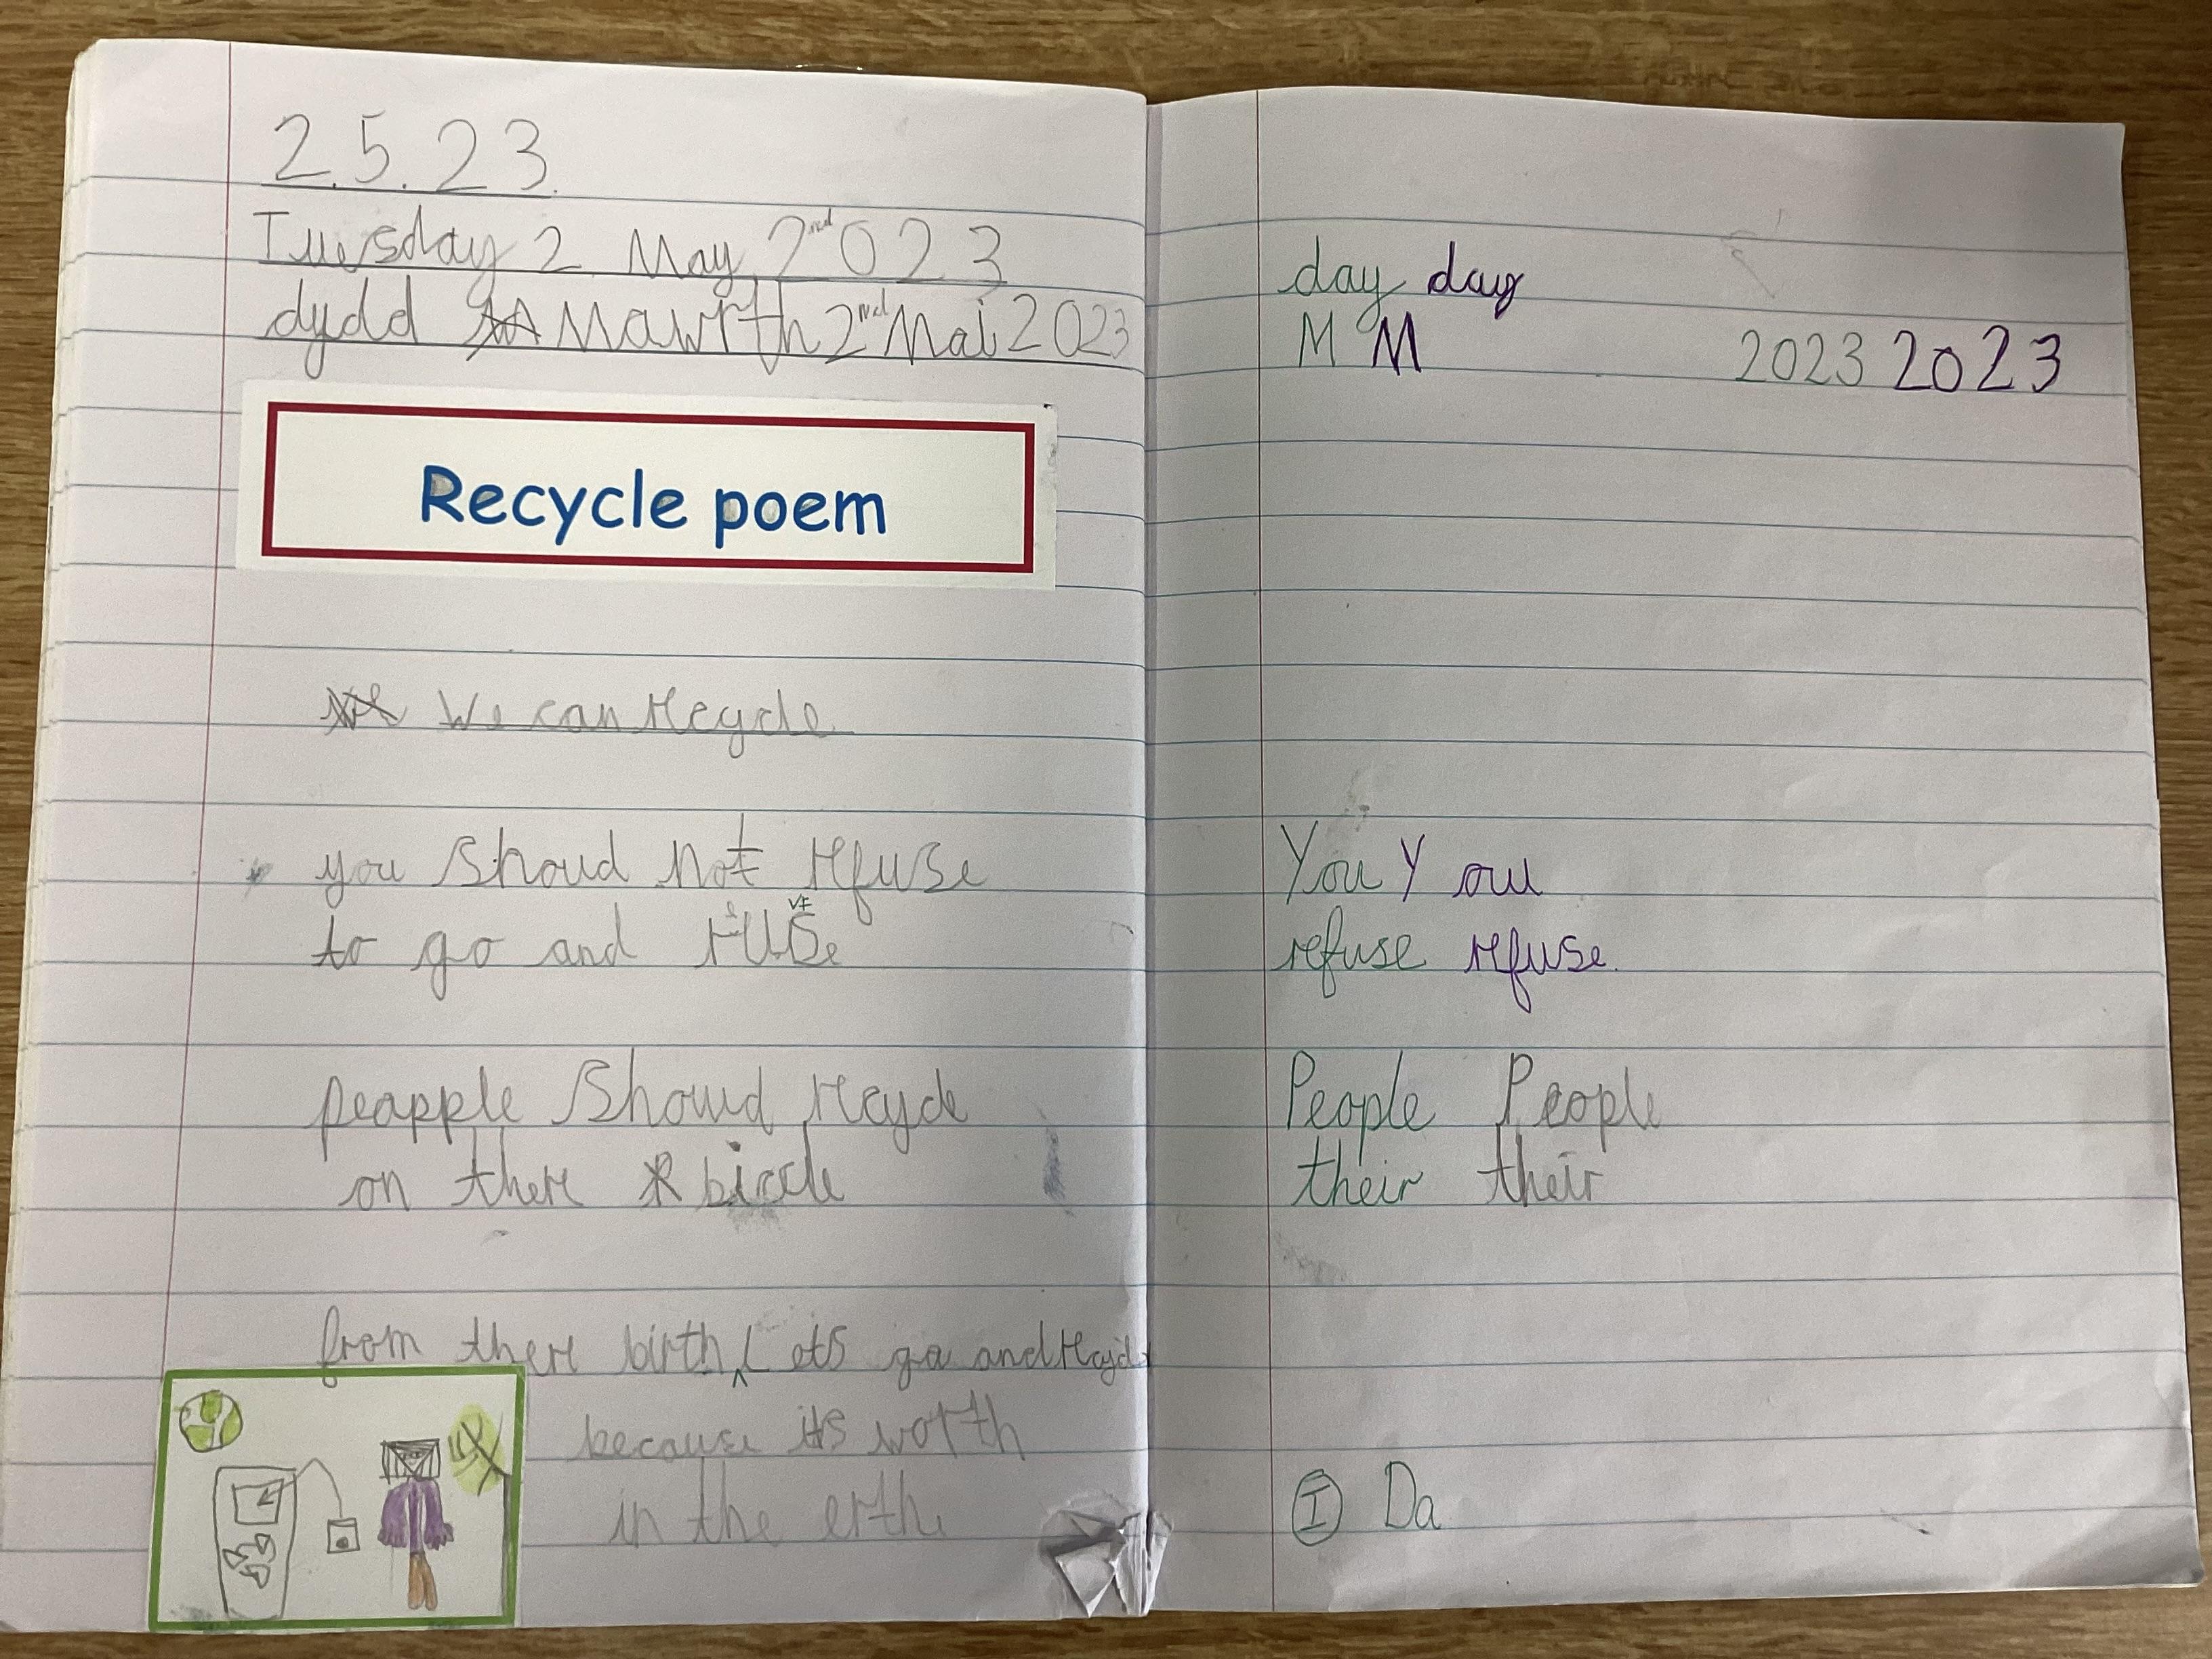 2.5.23.
Tuesday 2nd May 2023
dydd Mawrth 2nd Mai 2023
Recycle poem
We can recycle
you shoud not refuse
to go and reuse
peapple shoud recycle
on there biccle
from there birth, Lets go and recycle
because its worth
in the erth.
day day
M M
2023 2023
You You
refuse refuse.
People People
their their
I Da